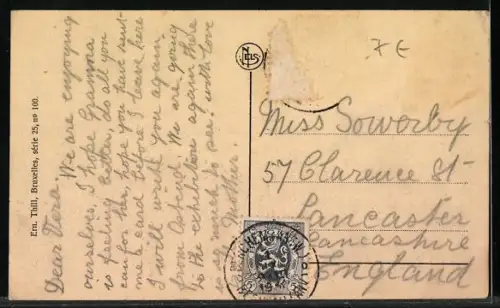 Ern. Thill, Bruxelles, série 25, no 100.
Dear Flora.
We are enjoying
ourselves. I hope Gramma
is feeling better, do all you
can for her, hope you have sent
me a card before I leave here
I will write you again
from Ostend. We are going
to the exhibition again there
is so much to see! with love
Mother.
NELS
7E
Miss Sowerby
57 Clarence St
Lancaster
Lancashire
England